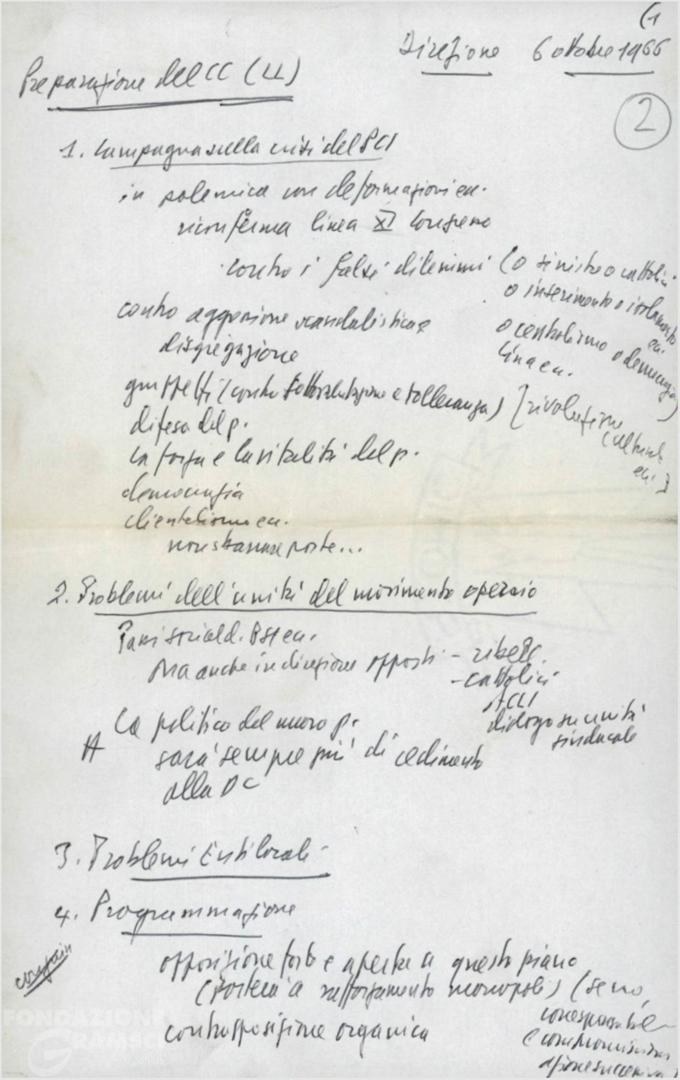 (1
Direzione 6 ottobre 1966
Preparazione del CC (LL)
2
1. Campagna sulla crisi del PCI
in polemica con deformazioni ecc.
riconferma linea XI Congresso
contro i falsi dilemmi (o sinistre o cattolici
o inserimento o isolamento
ecc.
o centralismo o democrazia)
linea ecc.
contro aggressione scandalistica e
disgregazione
gruppetti (contro sottovalutazione e tolleranza) [rivoluzione
culturale
ecc.]
difesa del p.
la forza e la vitalità del p.
democrazia
clientelismo ecc.
non stanno se poste...
2. Problemi dell'unità del movimento operaio
Part. sociald. ecc.
Ma anche in direzione opposti
- cattolici
ACLI
dialogo su unità
sindacale
La politica del nuovo p.
sarà sempre più di cedimento
alla DC
3. Problemi Enti locali
4. Programmazione
opposizione forte e aperta a questo piano
(Porterà a rafforzamento monopoli) (se no,
corresponsabile
controproposizione organica
FONDAZIONE
GRAMSCI